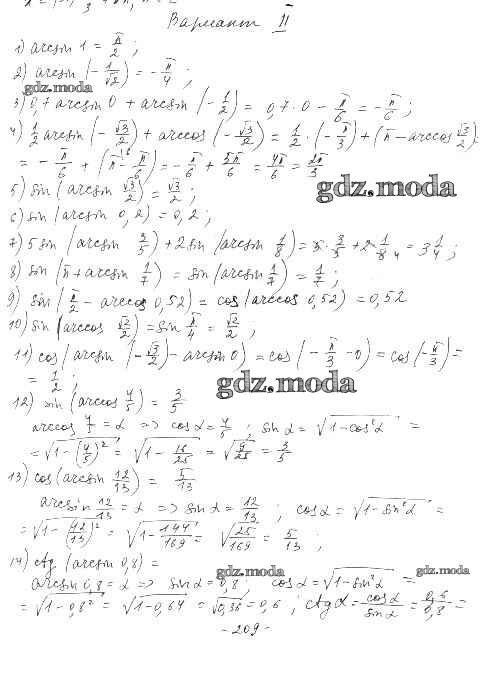 Вариант II
1) arcsin 1 = π/2 ;
2) arcsin (-1/√2) = -π/4 ;
gdz.moda
3) 0,7 arcsin 0 + arcsin (-1/2) = 0,7·0 - π/6 = -π/6 ;
4) 1/2 arcsin (-√3/2) + arccos (-√3/2) = 1/2 · (-π/3) + (π - arccos √3/2)
= -π/6 + (π - π/6) = -π/6 + 5π/6 = 4π/6 = 2π/3
5) sin (arcsin √3/2) = √3/2 ;
gdz.moda
6) sin (arcsin 0,2) = 0,2 ;
7) 5 sin (arcsin 3/5) + 2 sin (arcsin 1/8) = 5·3/5 + 2·1/8 4 = 3 1/4 ;
8) sin (π + arcsin 1/7) = sin (arcsin 1/7) = 1/7 ;
9) sin (π/2 - arccos 0,52) = cos (arccos 0,52) = 0,52
10) sin (arccos √2/2) = sin π/4 = √2/2 ;
11) cos (arcsin (-√3/2) - arcsin 0) = cos (-π/3 - 0) = cos (-π/3) =
= 1/2 ;
gdz.moda
12) sin (arccos 4/5) = 3/5
arccos 4/5 = α => cos α = 4/5 ; sin α = √1-cos²α =
= √1-(4/5)² = √1-16/25 = √9/25 = 3/5
13) cos (arcsin 12/13) = 5/13
arcsin 12/13 = α => sin α = 12/13 ; cos α = √1-sin²α =
= √1-(12/13)² = √1-144/169 = √25/169 = 5/13 ;
14) ctg (arcsin 0,8) =
gdz.moda gdz.moda
arcsin 0,8 = α => sin α = 0,8 ; cos α = √1-sin²α =
= √1-0,8² = √1-0,64 = √0,36 = 0,6 ; ctg α = cos α/sin α = 0,6/0,8 =
- 209 -